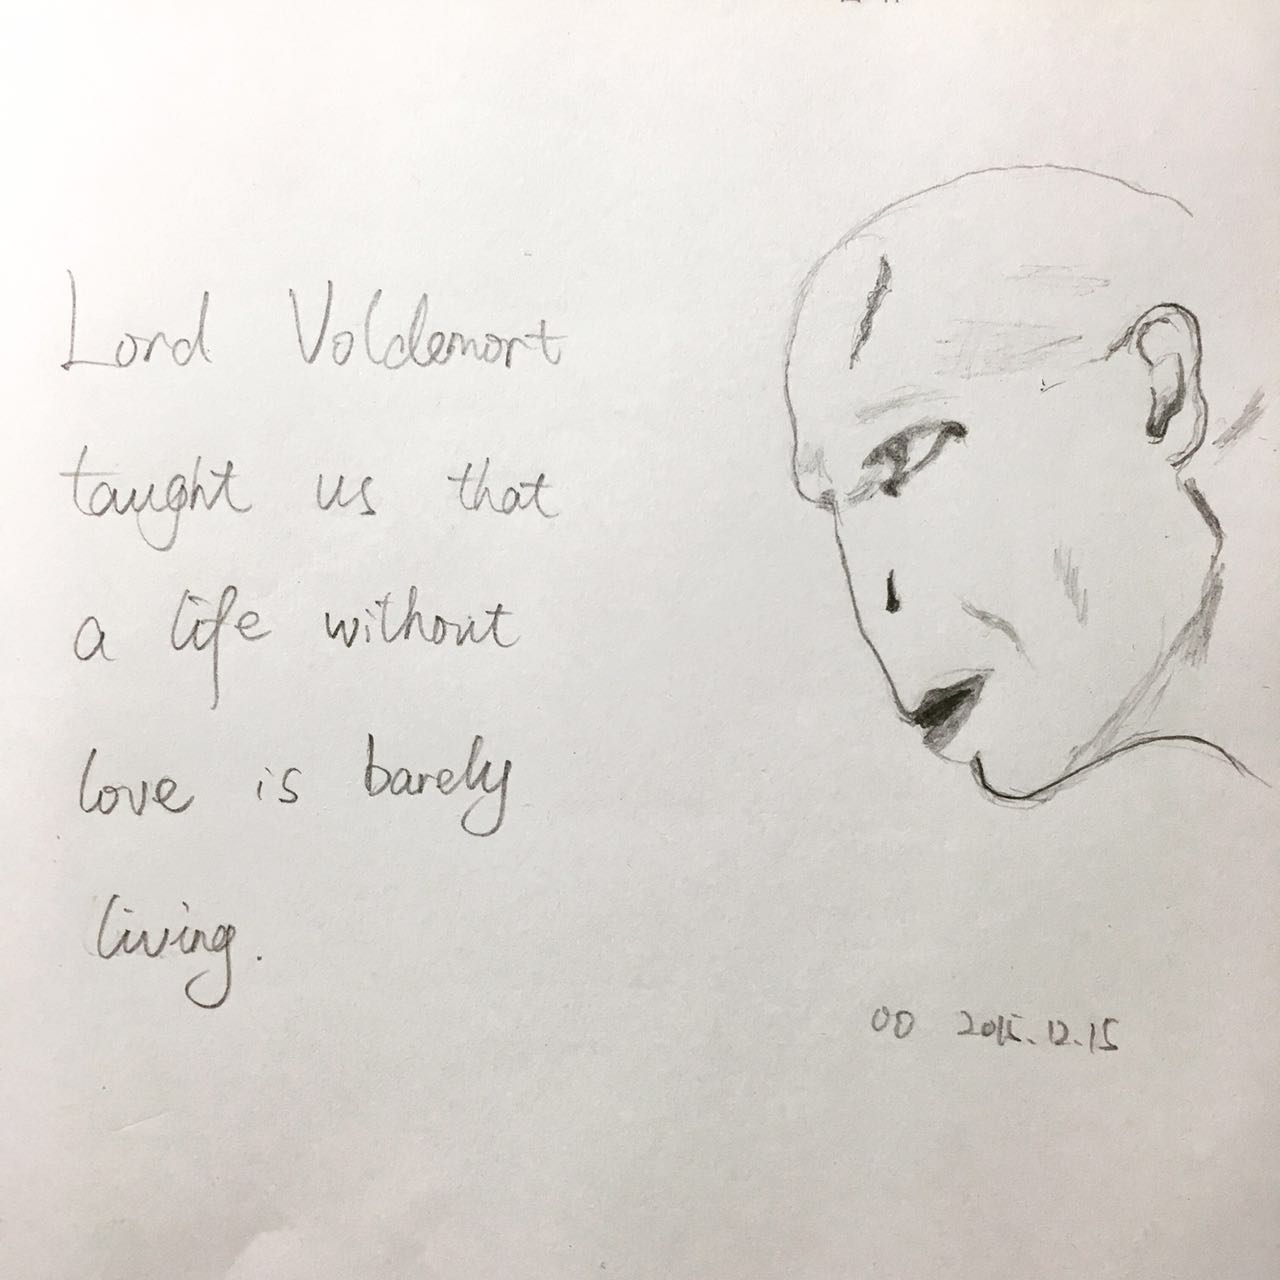 Lord Voldemort
taught us that
a life without
love is barely
living.
OO 2015.12.15